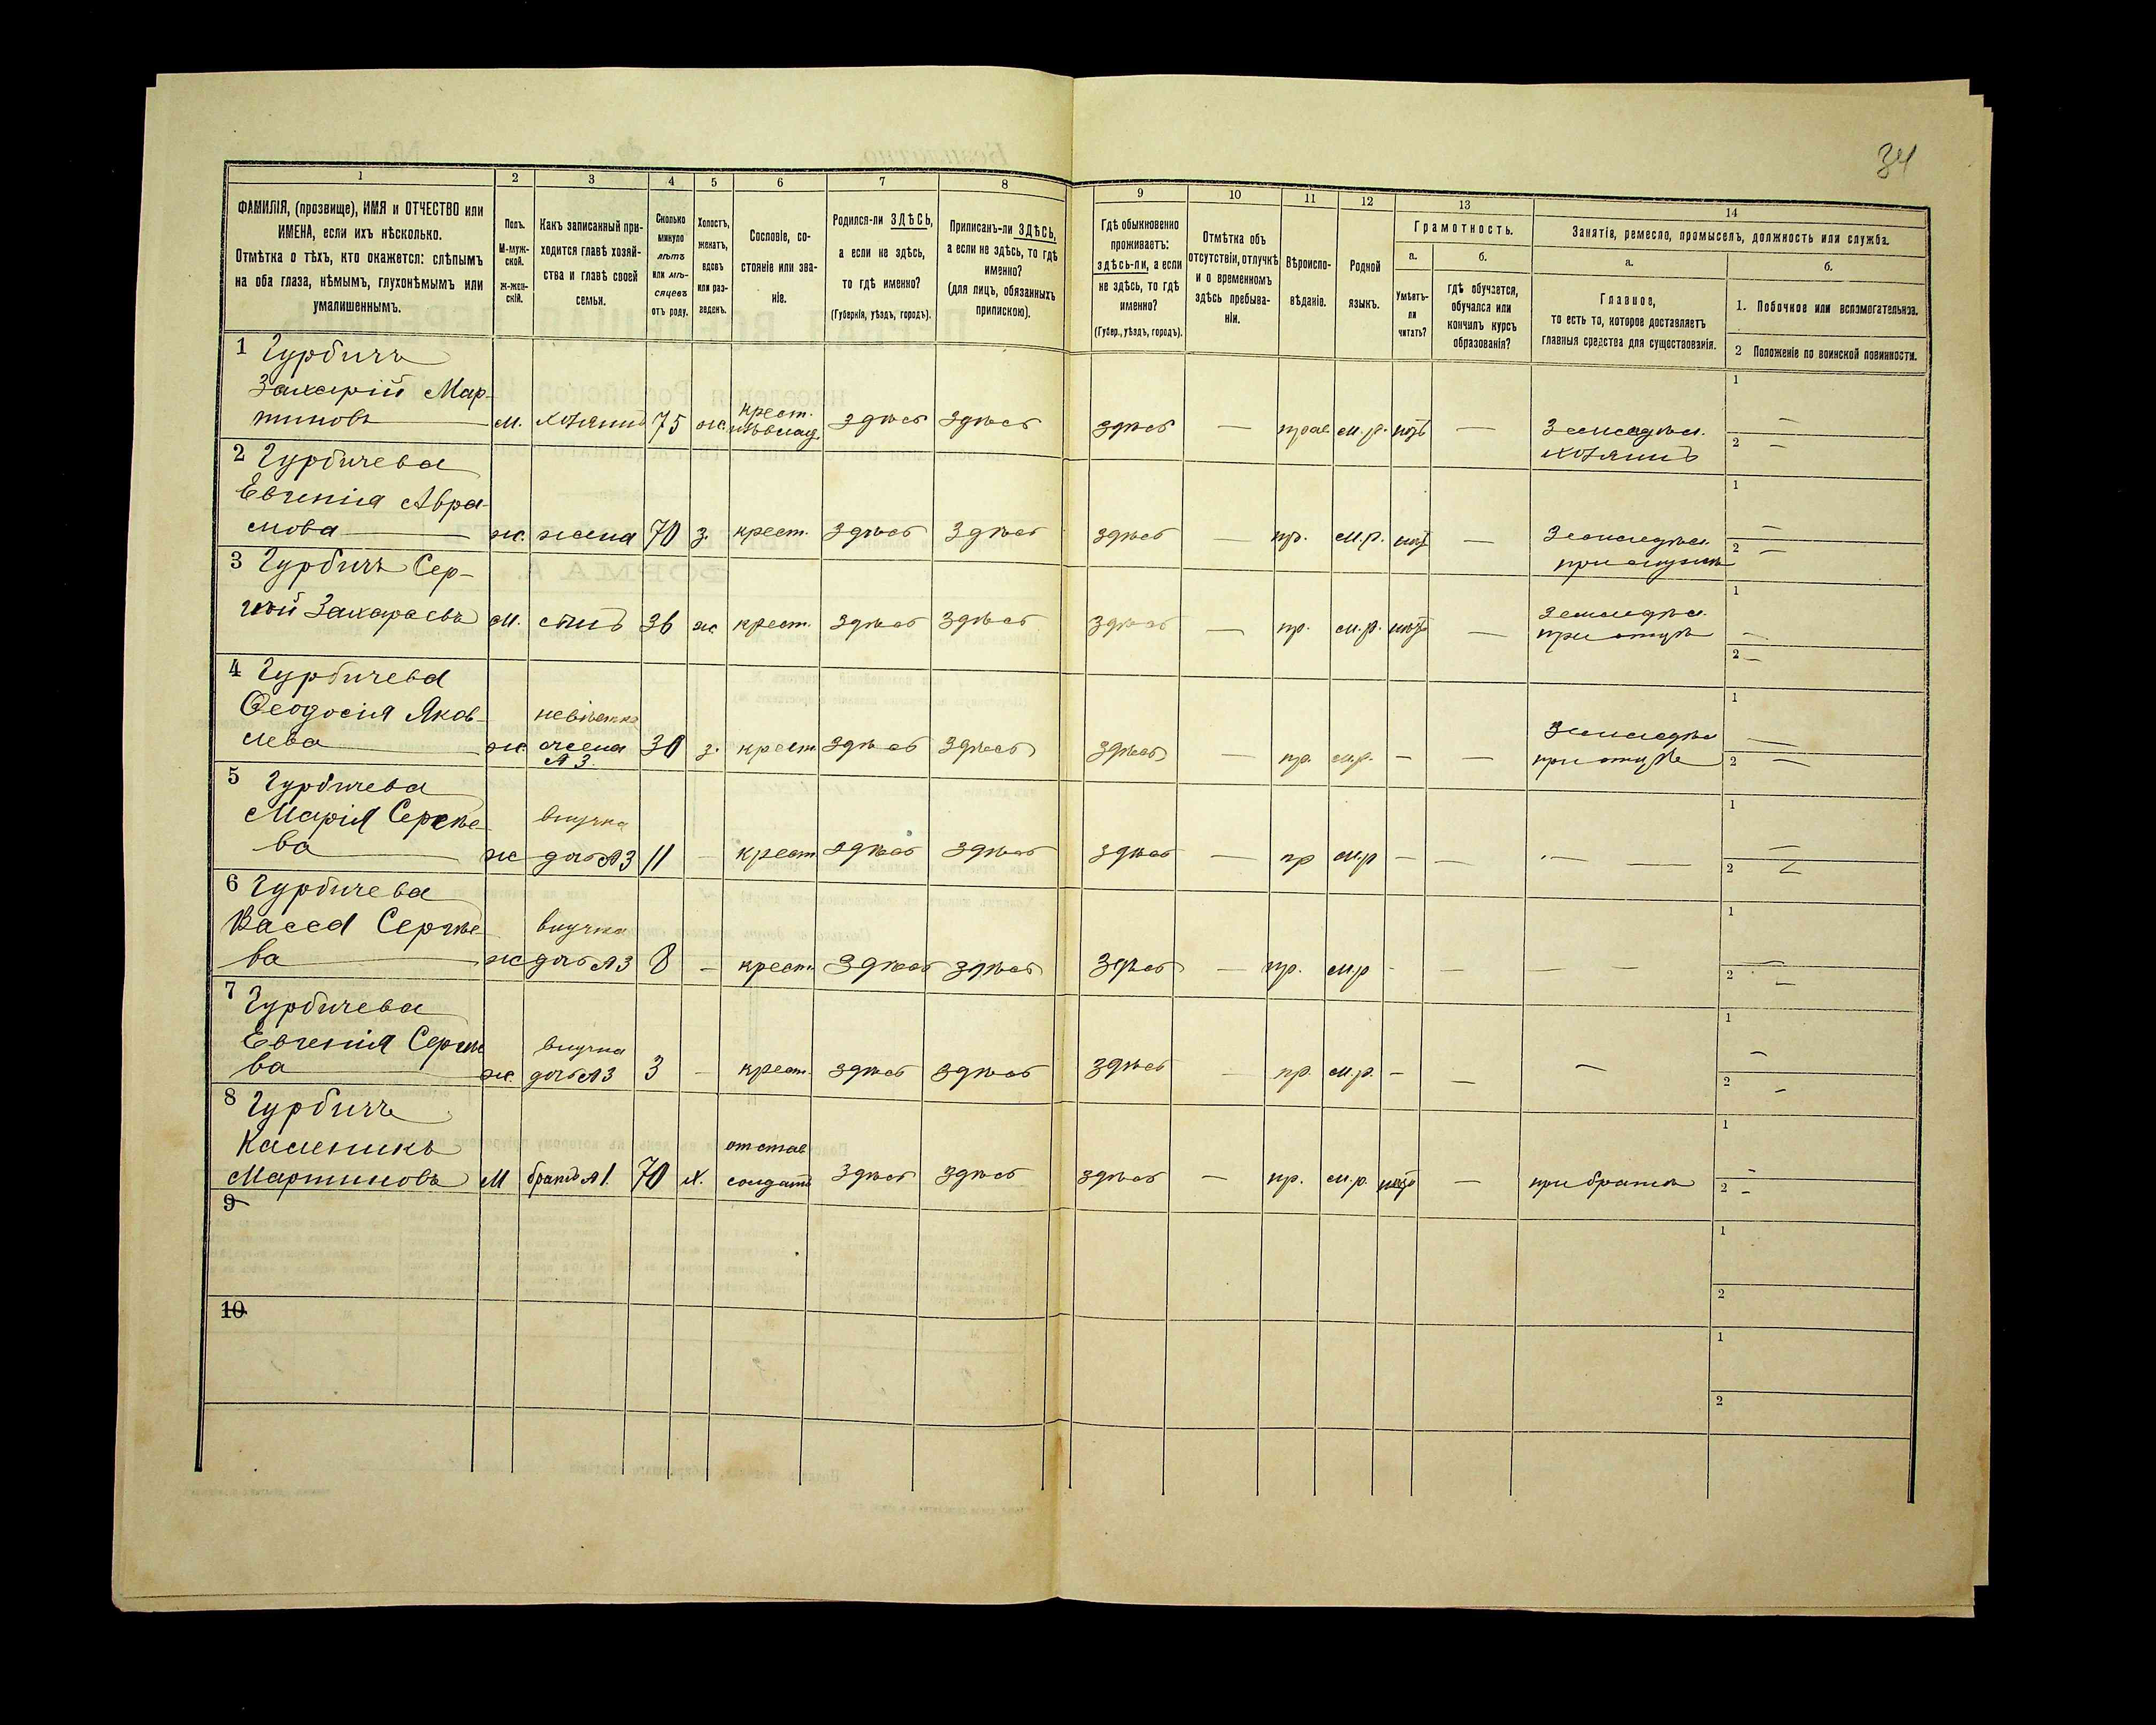 34
1 2 3 4 5 6 7 8 9 10 11 12 13 14
ФАМИЛІЯ, (прозвище), ИМЯ и ОТЧЕСТВО или
ИМЕНА, если ихъ нѣсколько.
Отмѣтка о тѣхъ, кто окажется: слѣпымъ
на оба глаза, нѣмымъ, глухонѣмымъ или
умалишеннымъ.
Полъ.
М-муж-
ской.
ж-жен-
скій.
Какъ записанный при-
ходится главѣ хозяй-
ства и главѣ своей
семьи.
Сколько
минуло
лѣтъ
или мѣ-
сяцевъ
отъ роду.
Холостъ,
женатъ,
вдовъ
или раз-
веденъ.
Сословіе, со-
стояніе или зва-
ніе.
Родился-ли ЗДѢСЬ,
а если не здѣсь,
то гдѣ именно?
(Губернія, уѣздъ, городъ).
Приписанъ-ли ЗДѢСЬ,
а если не здѣсь, то гдѣ
именно?
(для лицъ, обязанныхъ
припискою).
Гдѣ обыкновенно
проживаетъ:
здѣсь-ли, а если
не здѣсь, то гдѣ
именно?
(Губер., уѣздъ, городъ).
Отмѣтка объ
отсутствіи, отлучкѣ
и о временномъ
здѣсь пребыва-
ніи.
Вѣроиспо-
вѣданіе.
Родной
языкъ.
Грамотность.
а.
Умѣетъ-
ли
читать?
б.
гдѣ обучается,
обучался или
кончилъ курсъ
образованія?
Занятіе, ремесло, промыселъ, должность или служба.
а.
Главное,
то есть то, которое доставляетъ
главныя средства для существованія.
б.
1. Побочное или вспомогательное.
2 Положеніе по воинской повинности.
1 Гурбичъ
Захарій Мар-
тиновъ — м. хозяинъ 75 ж. крест. здѣсь здѣсь здѣсь — прав. м.р. нѣтъ — Земледѣл. 1 —
хозяинъ 2 —
2 Гурбичева
Евгенія Авра-
мова — ж. жена 70 з. крест. здѣсь здѣсь здѣсь — пр. м.р. нѣтъ — Земледѣл. 1 —
при мужѣ 2 —
3 Гурбичъ Сер-
гѣй Захараевъ м. сынъ 36 ж крест. здѣсь здѣсь здѣсь — пр. м.р. нѣтъ — земледѣл. 1 —
при отцѣ 2 —
4 Гурбичева
Ѳеодосія Яков- невѣстка
лева — ж жена 30 з. крест здѣсь здѣсь здѣсь — пр. м.р. — — Земледѣл 1 —
№3. при отцѣ 2 —
5 Гурбичева
Марія Сергѣе- внучка
ва — ж дочь №3 11 — крест здѣсь здѣсь здѣсь — пр м.р — — — — 1 —
2 —
6 Гурбичева
Васса Сергѣе- внучка
ва — ж дочь №3 8 — крест. здѣсь здѣсь здѣсь — пр. м.р - — — — 1 —
2 —
7 Гурбичева
Евгенія Сергѣе внучка
ва — ж. дочь №3 3 — крест. здѣсь здѣсь здѣсь — пр. м.р. — — — 1 —
2 —
8 Гурбичъ
Каленикъ отстав
Мартиновъ М братъ №1. 70 х. солдатъ здѣсь здѣсь здѣсь — пр. м.р. нѣтъ — при братѣ 1 —
2 —
9 1
2
10 1
2